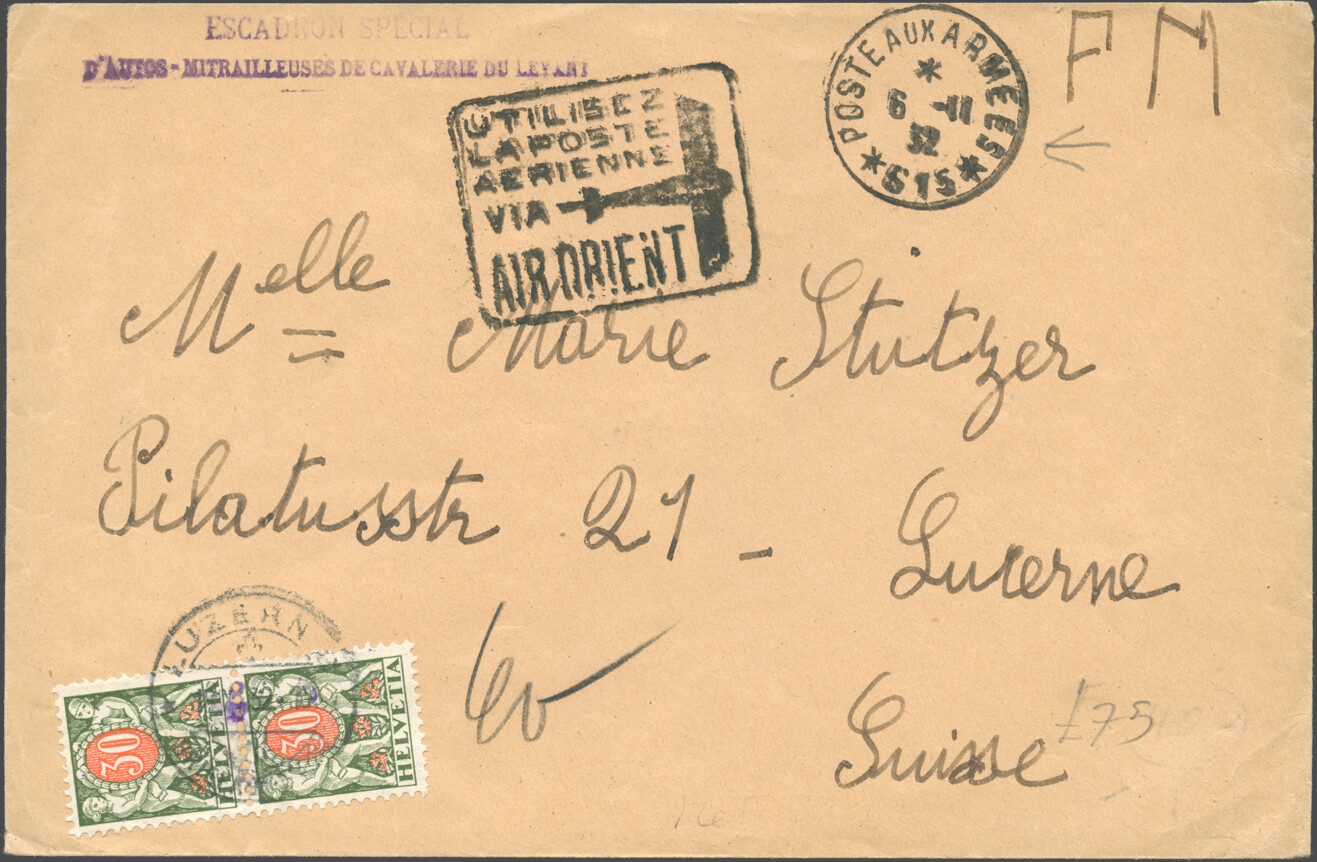 ESCADRON SPECIAL
D'AUTOS-MITRAILLEUSES DE CAVALERIE DU LEVANT
POSTE AUX ARMEES
* 6 -11 32 *
* 615 *
F M
UTILISEZ
LA POSTE
AERIENNE
VIA
AIR ORIENT
Melle Marie Stutzer
Pilatusstr 21 -
Lucerne
Suisse
£75
LUZERN
30 HELVETIA
30 HELVETIA